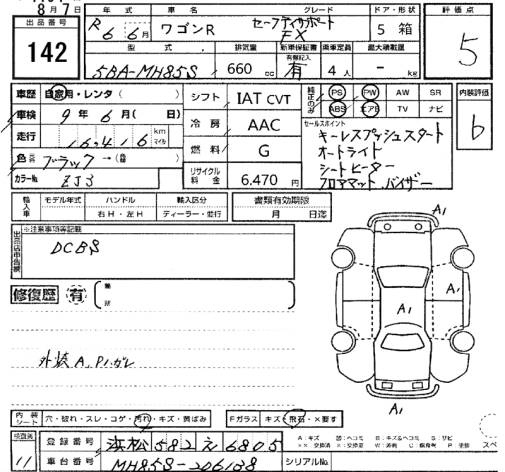 8月7日
出品番号 年式 車名 グレード ドア・形状 評価点
142
R6 6月 ワゴンR セーフティサポート FX 5 箱 5
型式 排気量 新車保証書 有無記入 乗車定員 最大積載量
5BA-MH85S 660cc 有 4人 - kg
車歴 自家用・レンタ ( ) シフト IAT CVT 純正のみ PS PW AW SR 内装評価
車検 9年 6月 ( 日) 冷房 AAC ABS エアB TV ナビ b
走行 16,416 km マイル 燃料 G セールスポイント
色 ブラック→( ) リサイクル料金 6,470円
カラーNo. ZJ3
キーレスプッシュスタート
オートライト
シートヒーター
フロアマット バイザー
輸入車 モデル年式 ハンドル 輸入区分 書類有効期限
年 右H・左H ディーラー・並行 月 日迄
出品店申告欄 ※注意事項等記載
DCBS
修復歴 有 箇所
外装A,P,
A1
A1
A1
A1
内装シート 穴・破れ・スレ・コゲ・汚れ・キズ・黄ばみ Fガラス キズ・飛石・×要す
検査員 11
登録番号 浜松582え6805
車台番号 MH85S-206138 シリアルNo.